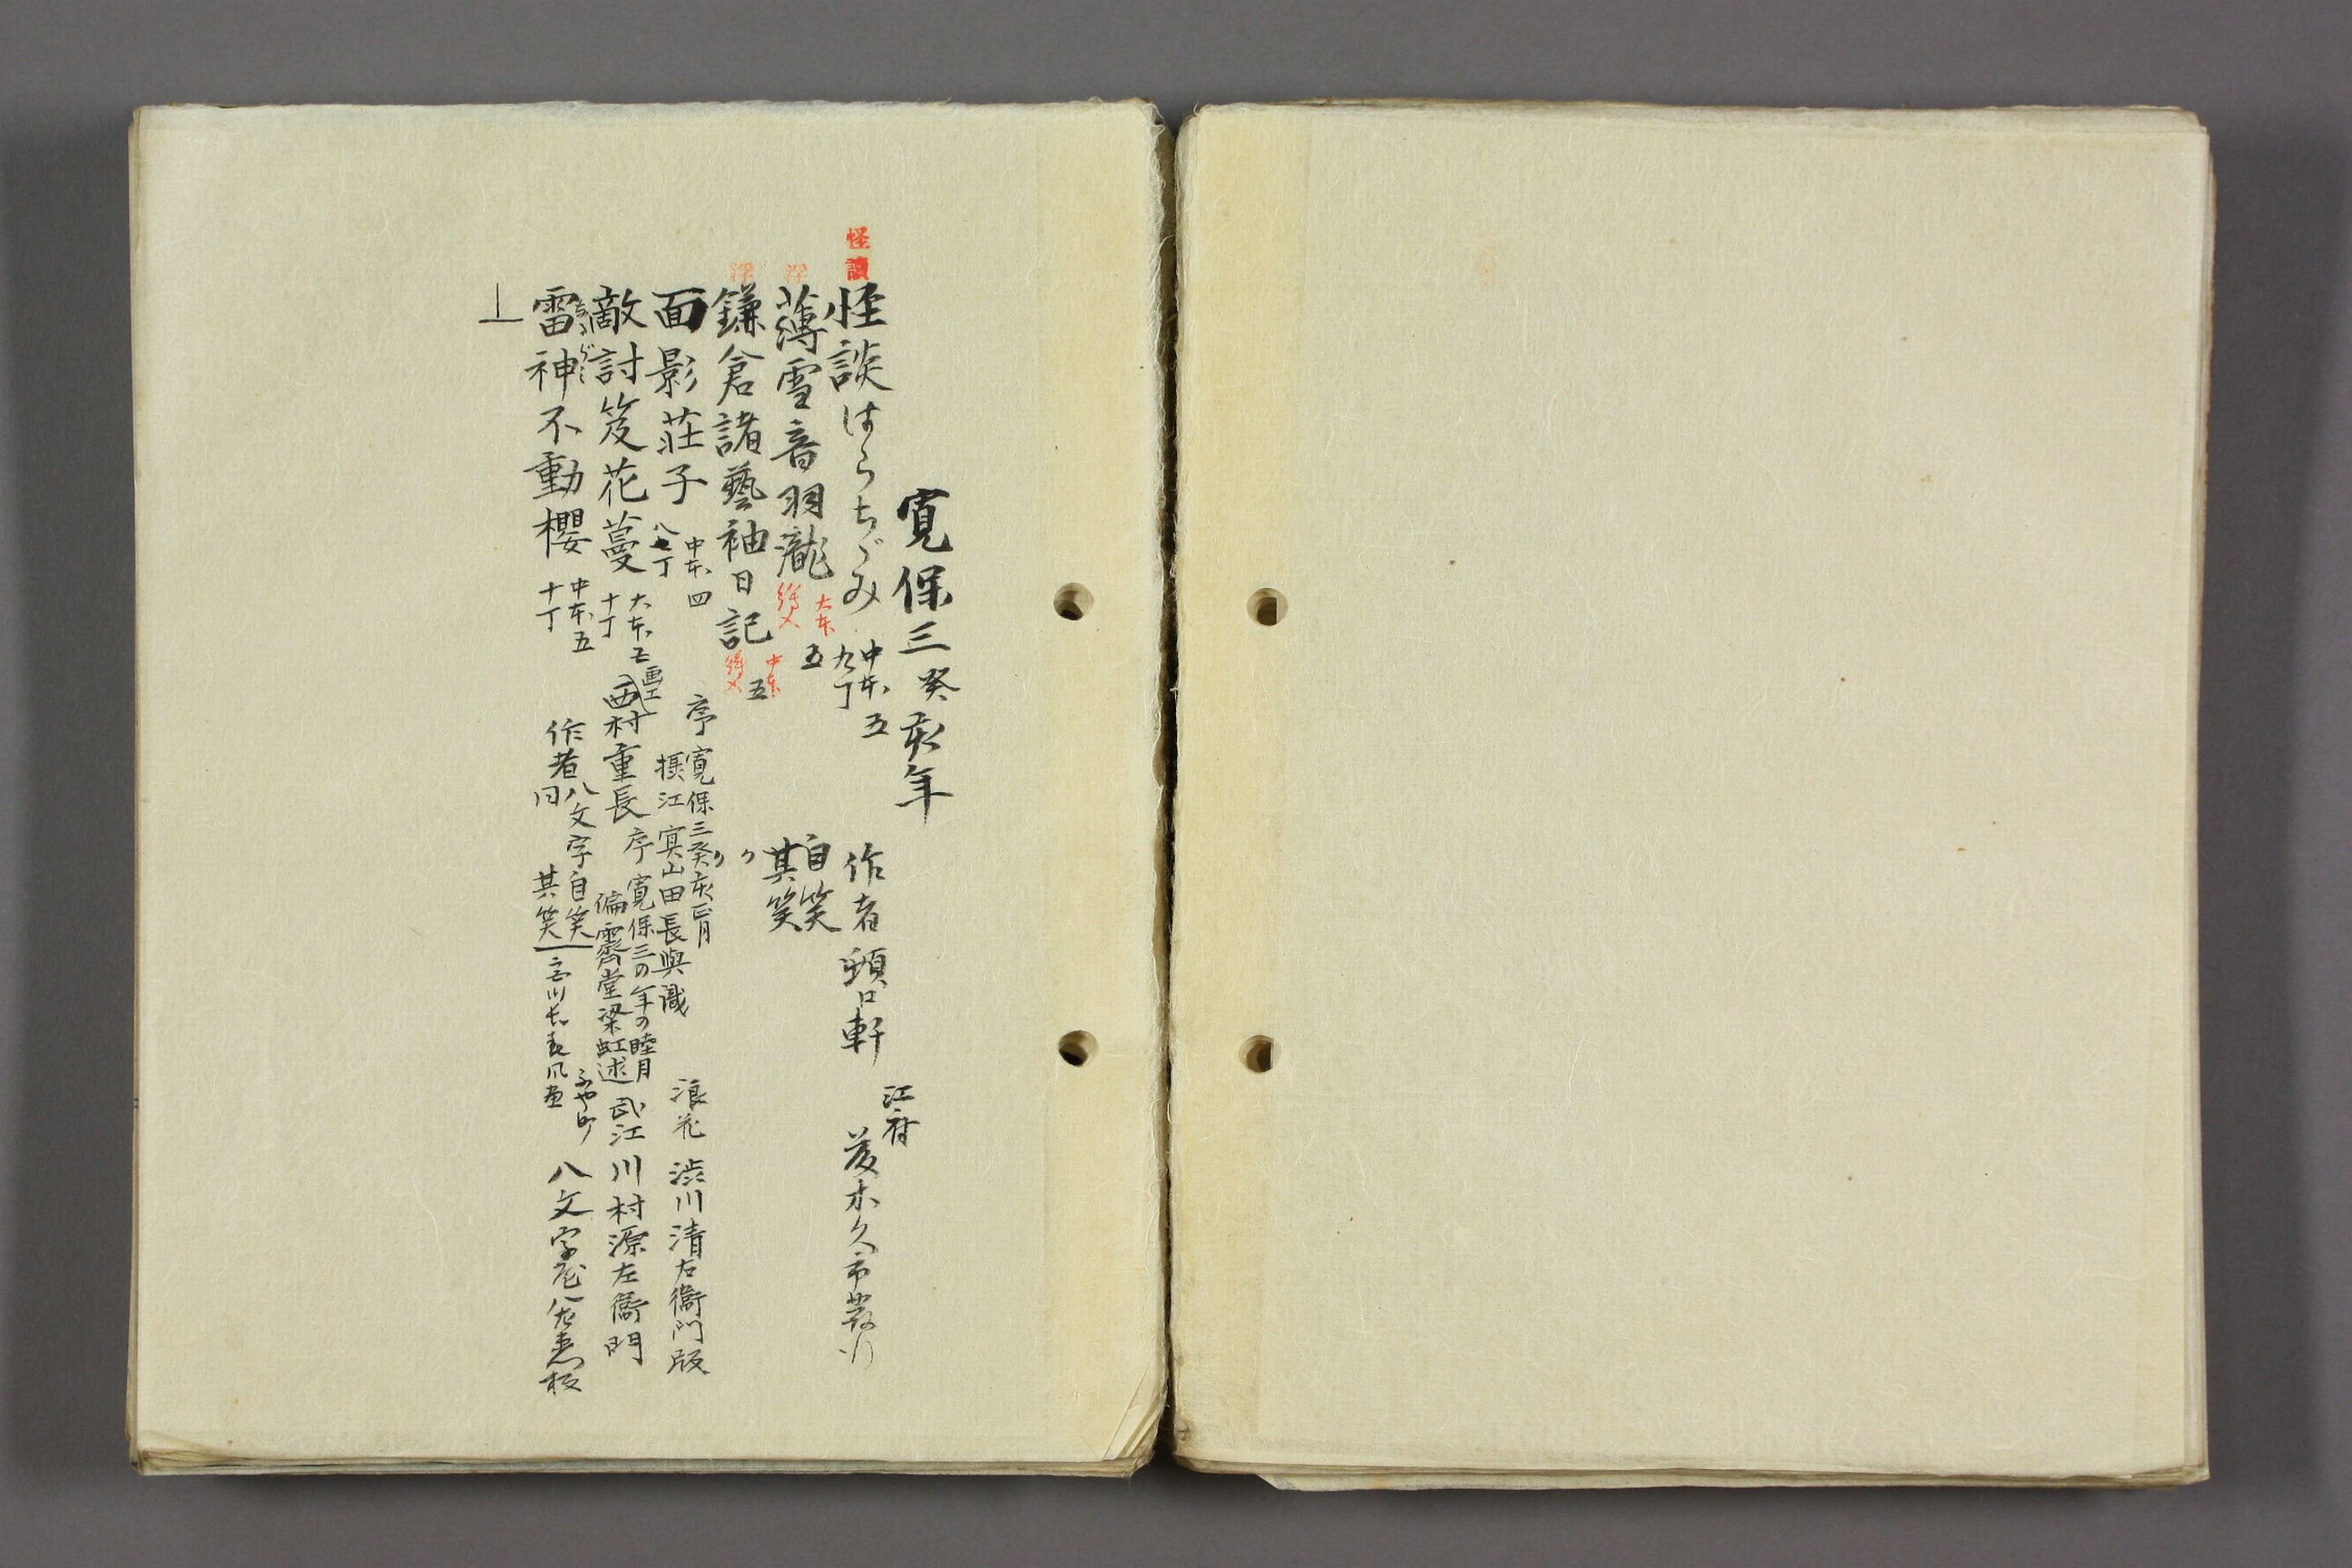 寛保三癸亥年
怪談
怪談はらちゞみ 中本五 九丁 作者 頤口軒 江府 菱木久市
浮
薄雪音羽瀧 大本五 自笑 其笑
浮
鎌倉諸藝袖日記 中本五 〃 〃
面影荘子 中本四 序 寛保三癸亥正月 摂江 寘山田長與識 浪花 渋川清右衞門版
敵討笈花蔓 大本五 十丁 画工 西村重長 序 寛保三の年の睦月 偏霽堂梁虹述 武江 川村源左衞門
雷神不動櫻 中本五 十丁 作者 八文字自笑 同 其笑 ふや町 八文字屋八左衛板